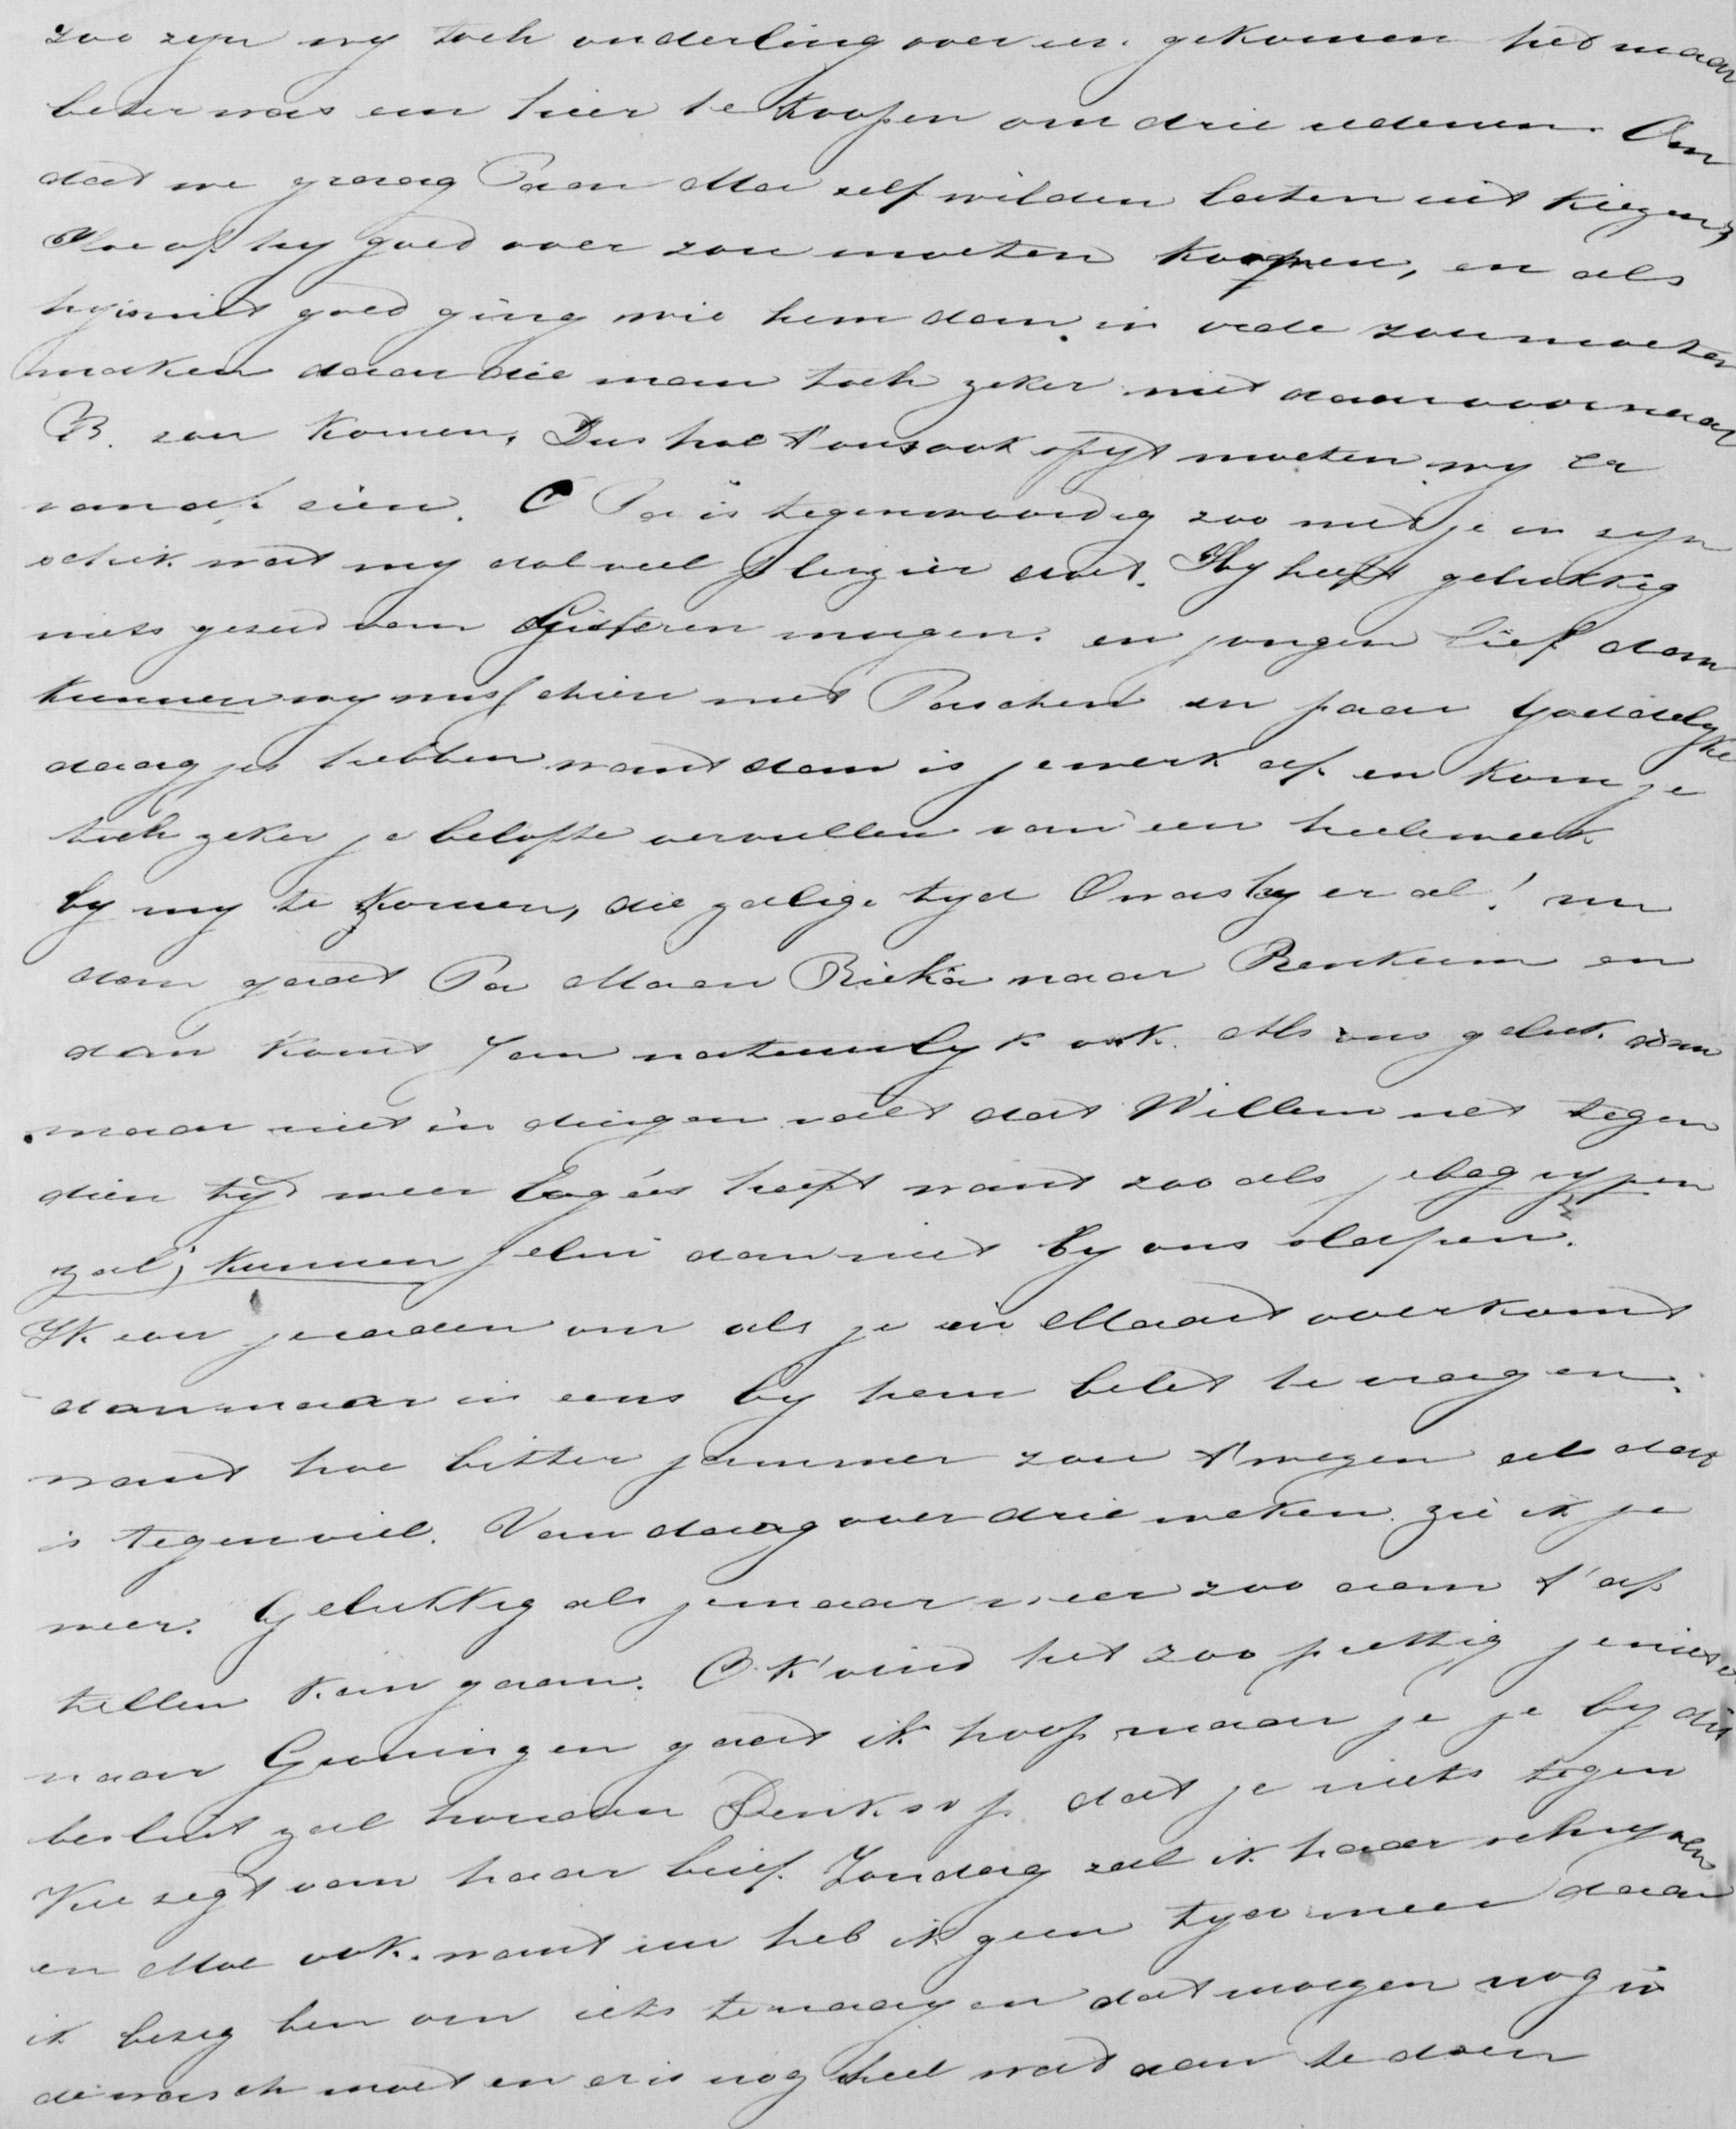 zoo zijn wij toch onderling over een gekomen het maar
beter was em hier te koopen om drie redenen. Om
dat we graag Pa en Ma self wilden laten uit kiezen,
Hoe of hij goed over zou moeten komen, en als
hij is niet goed ging wie hem dan in orde zou moeten
maken daar die man toch zeker niet daarvoor naar
B. zou komen. Dus hoe 't ons ook spijt moeten wij er
van af sien. O Pa is tegenwoordig zoo netje in zijn
schik wat mij dol veel pleizier doet. Hij heeft gelukkig
niets gesed van mugen. en jongen lief dan
kunnen wij misschien met Paschen en paar goddelyke
daagjes hebben want dan is je werk af en kom je
toch zeker je belofte vervullen van een heele week
by my te komen, die zalige tyd O was hy er al! nu
dan gaat Pa Ma en Rieka naar Renkum en
dan komt Jan natuurlyk ook. Als ons geluk dan
maar niet in duigen valt dat Willem net tegen
dien tyd meer logées heeft want zoo als je begrypen
zal, kunnen jelui dan niet by ons slapen.
Ik sou je raden om als je in Maart overkomt
dan maar in eens by hem belet te vragen.
want hoe bitter jammer zou 't wezen als dat
is tegenviel. Van daag over drie weken zie ik je
weer. Gelukkig als je maar weer zoo aan 't af
tellen kan gaan. O k' vind het zoo prettig je niet
naar Groningen gaat ik hoop maar je je by dit
besluit zal houden Denk s op dat je niets tegen
segt van haar brief. Zondag zal ik haar schryven
en Moe ook. want nu heb ik geen tyd meer daar
ik bezig ben om iets te naayen dat morgen nog in
de wasch moet en er is nog heel wat aan te doen